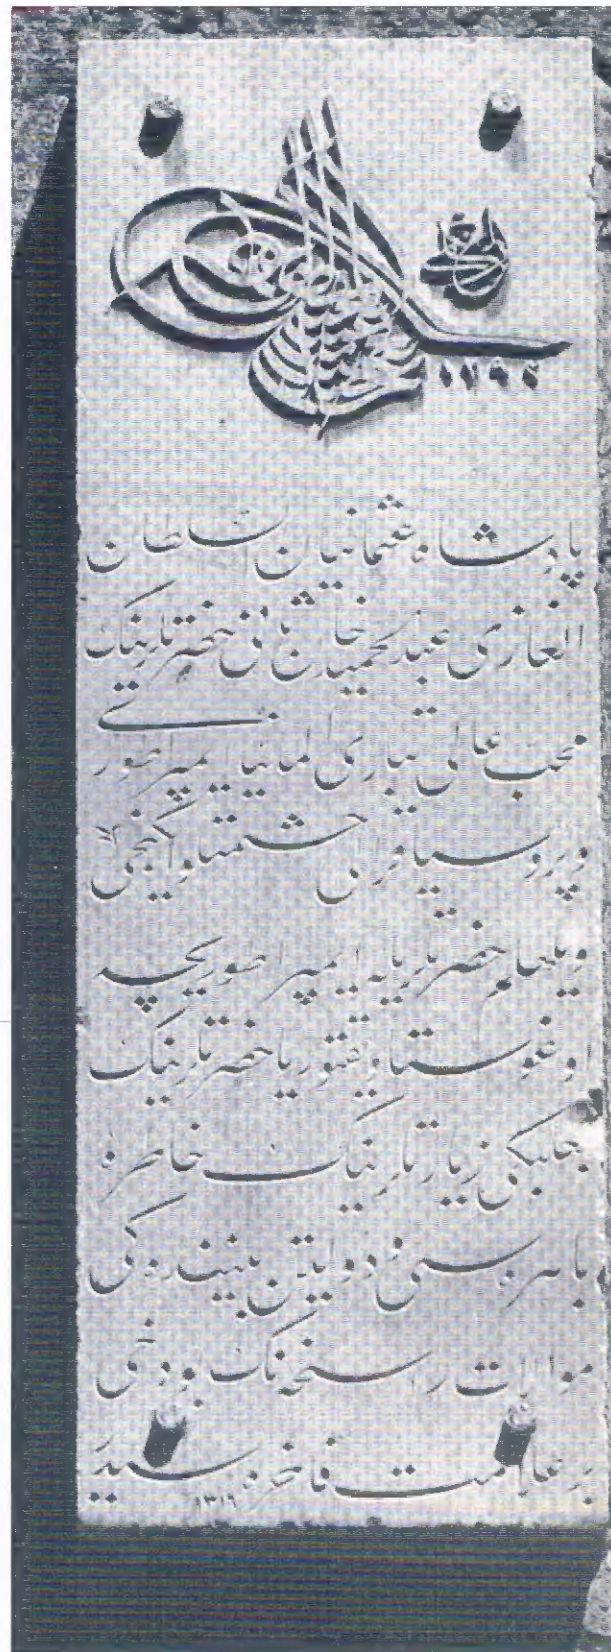 الغازی
پادشاه عثمانیان السلطان
الغازی عبد الحمید خان ثانی حضرتلرینك
محب عالی تباری المانیا ایمپراطوری
و پروسیا قرالی حشمتلو ایکنجی
ویلهلم حضرتلریله ایمپراطوریچه
اوغوستا ویقتوریا حضرتلرینك
بعلبكی زیارتلرینك خاطرۀ
باهره سی و دولتین بیننده كی
موالات راسخه نك بودخی
بر علامت فاخره سیدر ١٣١٦